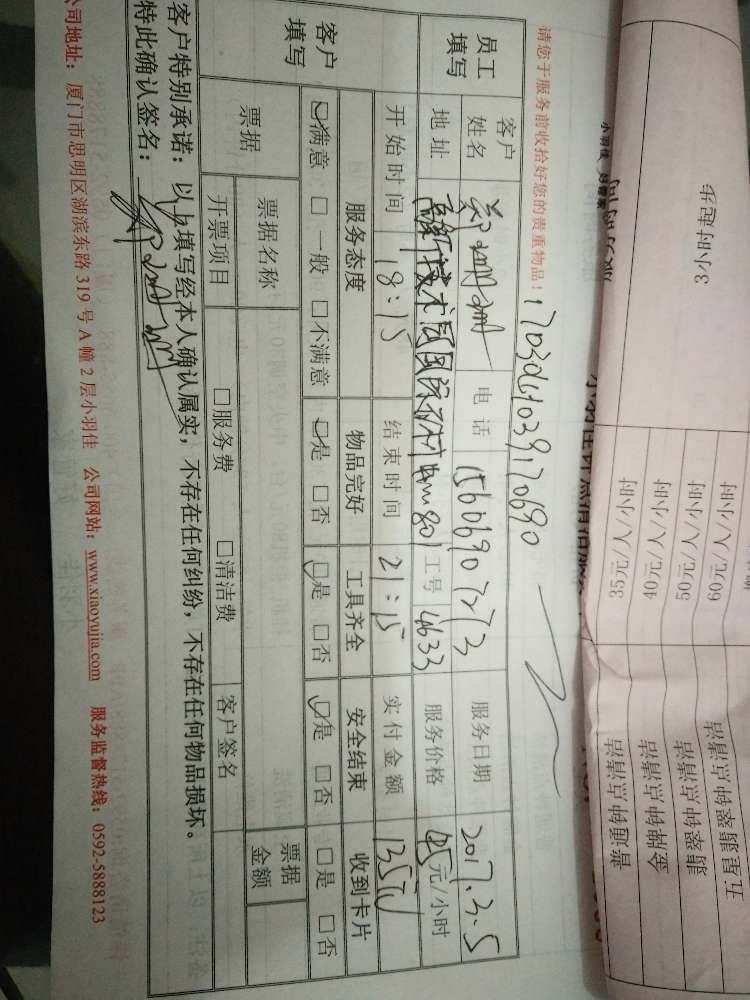 3小时起步
35元/人/小时
40元/人/小时
50元/人/小时
60元/人/小时
普通钟点清洁
金牌钟点清洁
翡翠钟点清洁
五星翡翠钟点清洁
请您于服务前收拾好您的贵重物品！
员工填写 客户姓名 电话 15606907273 服务日期 2017.3.5
地址 801 工号 4633 服务价格 45元/小时
客户填写 开始时间 18:15 结束时间 21:15 实付金额 135元
服务态度 物品完好 工具齐全 安全结束 收到卡片
☑满意 □一般 □不满意 ☑是 □否 ☑是 □否 ☑是 □否 □是 □否
票据 票据名称 票据金额
开票项目 □服务费 □清洁费 客户签名
客户特别承诺：以上填写经本人确认属实，不存在任何纠纷，不存在任何物品损坏。
特此确认签名：
公司地址：厦门市思明区湖滨东路 319 号 A 幢 2 层小羽佳 公司网站：www.xiaoyujia.com 服务监督热线：0592-5888123